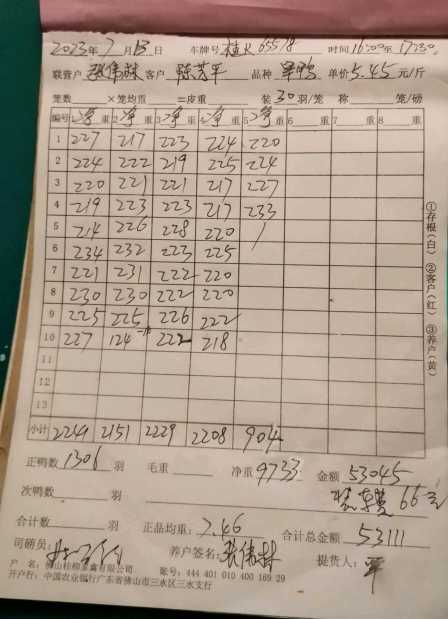 2023年7月13日 车牌号 桂K65578 时间16:00至17:30
联营户 张伟林 客户 陈芳平 品种 旱鸭 单价5.45元/斤
笼数 ×笼均重 =皮重 装30羽/笼 称 笼/磅
编号 1净重 2净重 3净重 4净重 5净重 6 重 7 重 8 重
1 227 217 223 224 220
2 224 222 219 225 224
3 220 221 221 217 227
4 219 223 223 217 233
5 214 226 228 220 /
6 234 232 223 225
7 221 231 222 220
8 230 230 222 220
9 225 225 226 222
10 227 124 222 218
11
12
13
小计 2241 2151 2229 2208 904
正鸭数1306羽 毛重 净重9733 金额53045
次鸭数 羽 装车费66元
合计数 羽 正品均重:7.46 合计总金额53111
司磅员: 养户签名:张伟林 提货人:平
户 名:佛山桂柳家禽有限公司 账号:444 401 010 400 169 29
开户行:中国农业银行广东省佛山市三水区三水支行
①存根(白) ②客户(红) ③养户(黄)